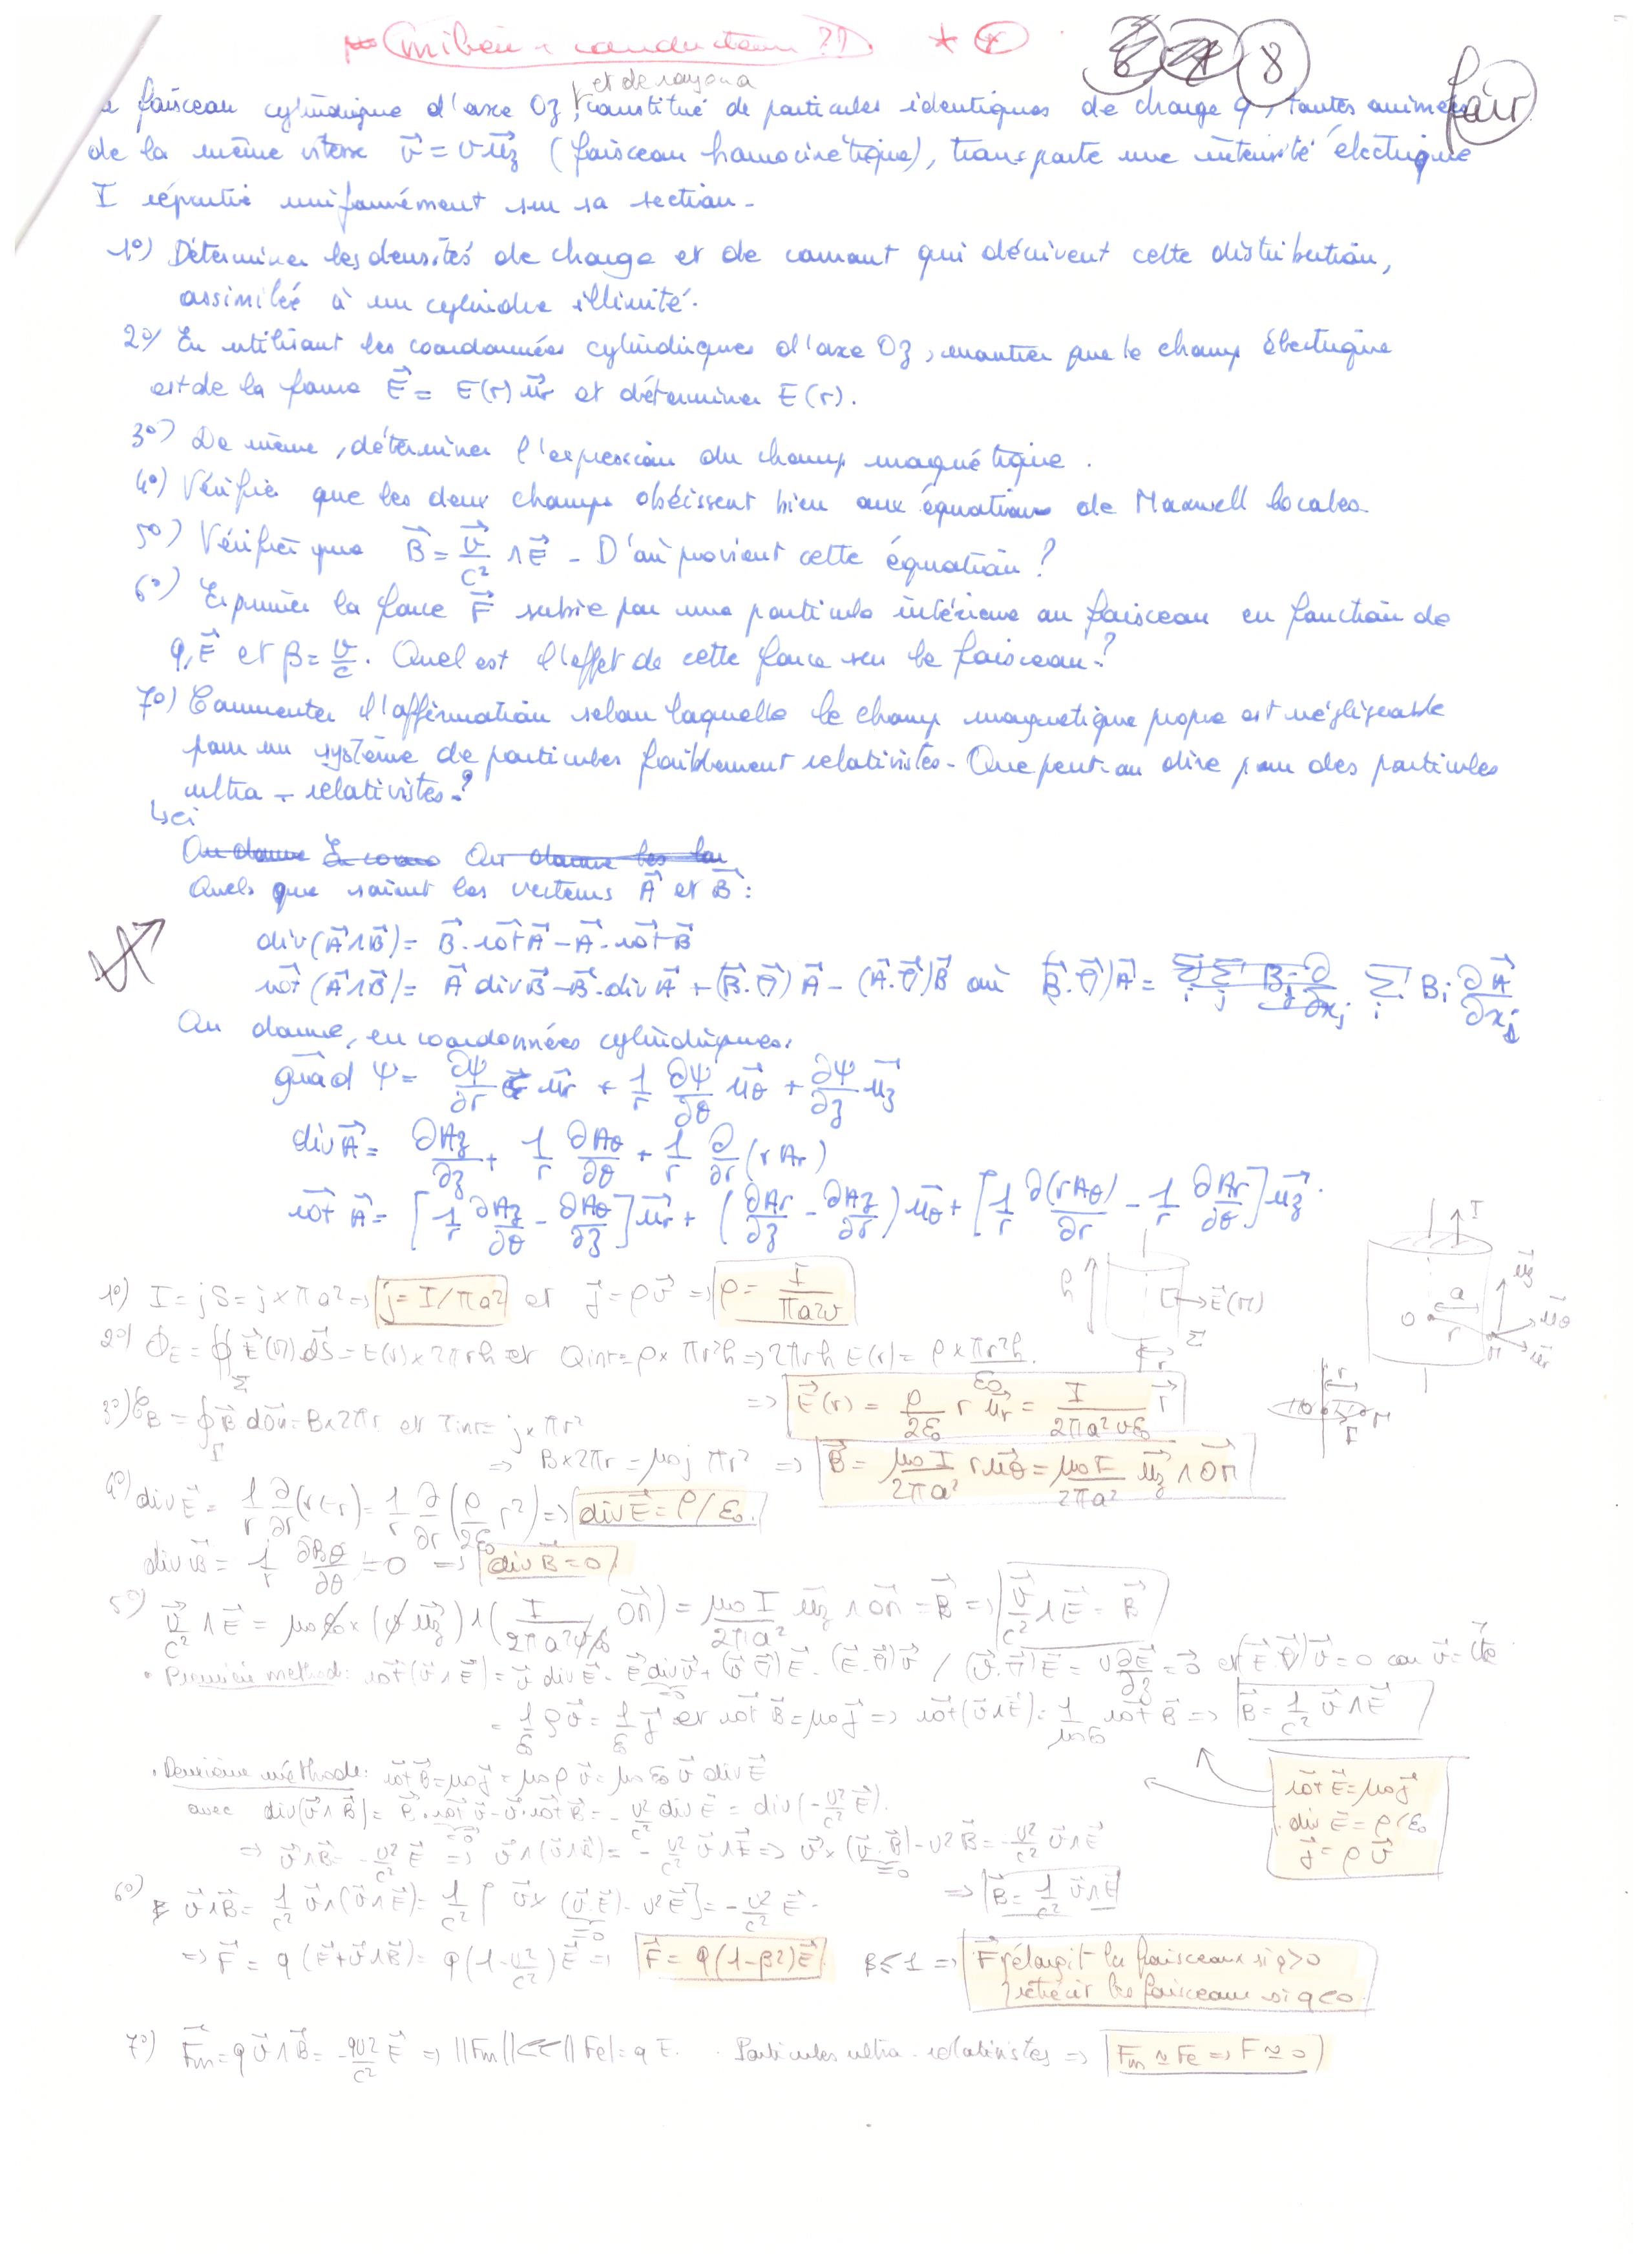 Milieu conducteur ??
8
fair
et de rayon a
faisceau cylindrique d'axe Oz, constitué de particules identiques de charge q, toutes animées
de la même vitesse v⃗ = v u⃗z (faisceau homocinétique), transporte une intensité électrique
I répartie uniformément sur sa section.
1°) Déterminer les densités de charge et de courant qui décrivent cette distribution,
assimilée à un cylindre illimité.
2°/ En utilisant les coordonnées cylindriques d'axe Oz, montrer que le champ électrique
est de la forme E⃗ = E(r) u⃗r et déterminer E(r).
3°) De même, déterminer l'expression du champ magnétique.
4°) Vérifier que les deux champs obéissent bien aux équations de Maxwell locales.
5°) Vérifier que B⃗ = v⃗/c² ∧ E⃗ - D'où provient cette équation ?
6°) Exprimer la force F⃗ subie par une particule intérieure au faisceau en fonction de
q, E⃗ et β = v/c. Quel est l'effet de cette force sur le faisceau ?
7°) Commenter l'affirmation selon laquelle le champ magnétique propre est négligeable
pour un système de particules faiblement relativistes - Que peut-on dire pour des particules
ultra-relativistes ?
Quels que soient les vecteurs A⃗ et B⃗ :
div(A⃗∧B⃗) = B⃗.rot⃗A⃗ - A⃗.rot⃗B⃗
rot⃗(A⃗∧B⃗) = A⃗ div B⃗ - B⃗.div A⃗ + (B⃗.∇⃗)A⃗ - (A⃗.∇⃗)B⃗ où (B⃗.∇⃗)A⃗ = Σi Bi ∂A⃗/∂xi
On donne, en coordonnées cylindriques :
grad⃗ Ψ = ∂Ψ/∂r u⃗r + 1/r ∂Ψ/∂θ u⃗θ + ∂Ψ/∂z u⃗z
div A⃗ = ∂Az/∂z + 1/r ∂Aθ/∂θ + 1/r ∂/∂r (r Ar)
rot⃗ A⃗ = [1/r ∂Az/∂θ - ∂Aθ/∂z] u⃗r + (∂Ar/∂z - ∂Az/∂r) u⃗θ + [1/r ∂(rAθ)/∂r - 1/r ∂Ar/∂θ] u⃗z.
1°) I = jS = j × πa² => j = I/πa² et j⃗ = ρv⃗ => ρ = I/πa²v
2°) ΦE = ∯Σ E⃗(M) dS⃗ = E(r) × 2πrh et Qint = ρ × πr²h => 2πrh E(r) = ρ × πr²h/ε0
=> E⃗(r) = ρ/2ε0 r u⃗r = I/2πa²vε0 r⃗
3°) CB = ∮Γ B⃗ dOM⃗ = B × 2πr et Iint = j × πr²
=> B × 2πr = μ0 j πr² => B⃗ = μ0 I/2πa² r u⃗θ = μ0 I/2πa² u⃗z ∧ OM⃗
4°) div E⃗ = 1/r ∂/∂r (r Er) = 1/r ∂/∂r (ρ/2ε0 r²) => div E⃗ = ρ/ε0.
div B⃗ = 1/r ∂Bθ/∂θ = 0 => div B⃗ = 0
5°) v⃗/c² ∧ E⃗ = μ0 ε0 × (v u⃗z) ∧ (I/2πa²vε0 OM⃗) = μ0 I/2πa² u⃗z ∧ OM⃗ = B⃗ => v⃗/c² ∧ E⃗ = B⃗
• Première méthode : rot⃗(v⃗∧E⃗) = v⃗ div E⃗ - E⃗ div v⃗ + (v⃗ ∇⃗)E⃗ - (E⃗.∇⃗)v⃗ / (v⃗.∇⃗)E⃗ = v ∂E⃗/∂z = 0⃗ et (E⃗.∇⃗)v⃗ = 0 car v⃗ = C⃗te
= 1/ε0 ρv⃗ = 1/ε0 j⃗ et rot⃗ B⃗ = μ0 j⃗ => rot⃗(v⃗∧E⃗) = 1/μ0ε0 rot⃗ B⃗ => B⃗ = 1/c² v⃗∧E⃗
• Deuxième méthode : rot⃗ B⃗ = μ0 j⃗ = μ0 ρ v⃗ = μ0 ε0 v⃗ div E⃗
avec div(v⃗∧B⃗) = B⃗.rot⃗ v⃗ - v⃗.rot⃗ B⃗ = - v²/c² div E⃗ = div(-v²/c² E⃗).
=> v⃗∧B⃗ = -v²/c² E⃗ => v⃗∧(v⃗∧B⃗) = - v²/c² v⃗∧E⃗ => v⃗ × (v⃗.B⃗) - v² B⃗ = -v²/c² v⃗∧E⃗
=> B⃗ = 1/c² v⃗∧E⃗
rot⃗ E⃗ = μ0 j⃗
div E⃗ = ρ/ε0
j⃗ = ρ v⃗
6°) v⃗∧B⃗ = 1/c² v⃗∧(v⃗∧E⃗) = 1/c² [v⃗ × (v⃗.E⃗) - v² E⃗] = -v²/c² E⃗.
=> F⃗ = q(E⃗ + v⃗∧B⃗) = q(1 - v²/c²)E⃗ => F⃗ = q(1-β²)E⃗ β ≤ 1 => F⃗ élargit les faisceaux si q>0
rétrécit les faisceaux si q<0.
7°) F⃗m = q v⃗∧B⃗ = -qv²/c² E⃗ => ||Fm|| << ||Fe|| = qE. Particules ultra-relativistes => Fm ≃ Fe => F ≃ 0